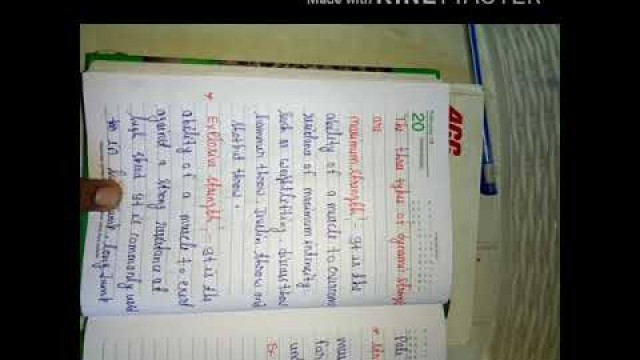 Made with KINEMASTER
ACC
20
The three types of dynamic strength
are
maximum strength - It is the
ability of a muscle to overcome
resistance of maximum intensity
such as weightlifting, discus throw
hammer throw, Javelin throw and
Shotput throw.
* Explosive strength - It is the
ability of a muscle to exert
against a strong resistance at
high speed It is commonly used
in jump, long jump